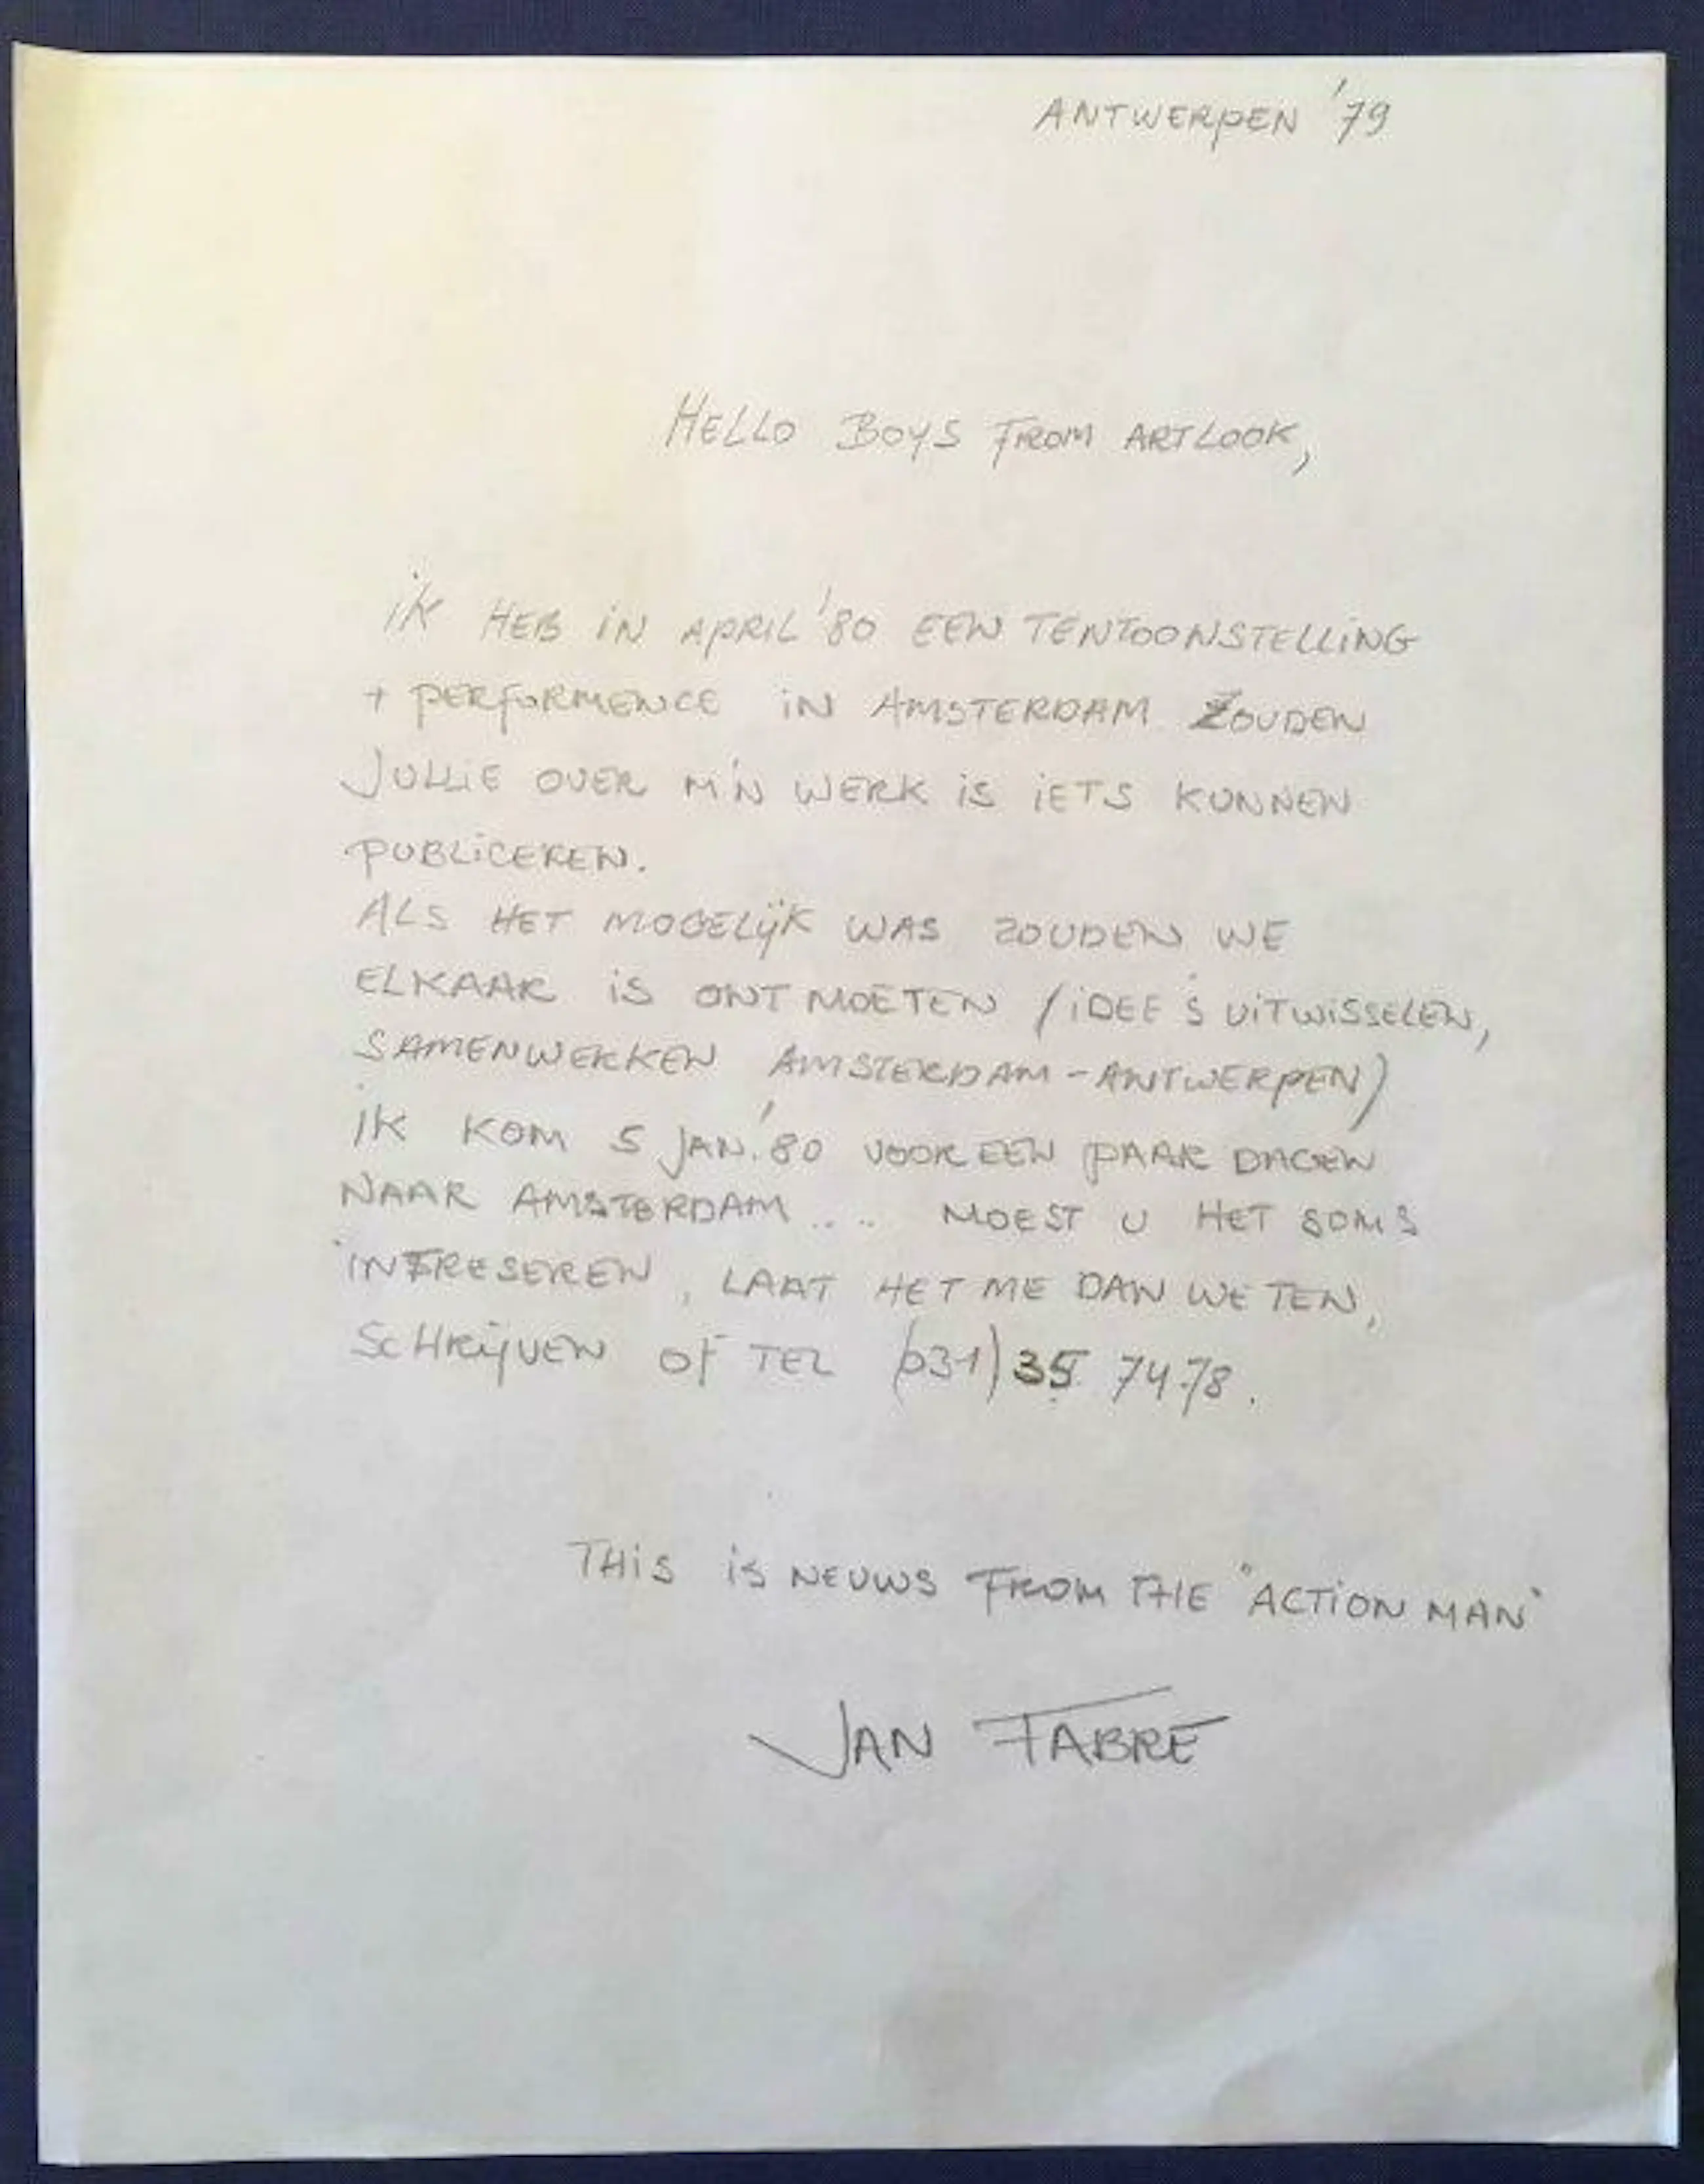 ANTWERPEN '79
HELLO BOYS FROM ARTLOOK,
iK HEB iN APRIL '80 EEN TENTOONSTELLiNG
+ PERFORMENCE iN AMSTERDAM ZOUDEN
JULLiE OVER M'N WERK iS iETS KUNNEN
PUBLiCEREN.
ALS HET MOGELijK WAS ZOUDEN WE
ELKAAR iS ONTMOETEN (iDEE'S UiTWiSSELEN,
SAMENWERKEN AMSTERDAM-ANTWERPEN)
iK KOM 5 JAN.'80 VOOR EEN PAAR DAGEN
NAAR AMSTERDAM .... MOEST U HET SOMS
iNTRESEREN, LAAT HET ME DAN WETEN,
SCHRijVEN OF TEL (031) 35 74 78.
THiS iS NEUWS FROM THE "ACTiON MAN"
JAN FABRE